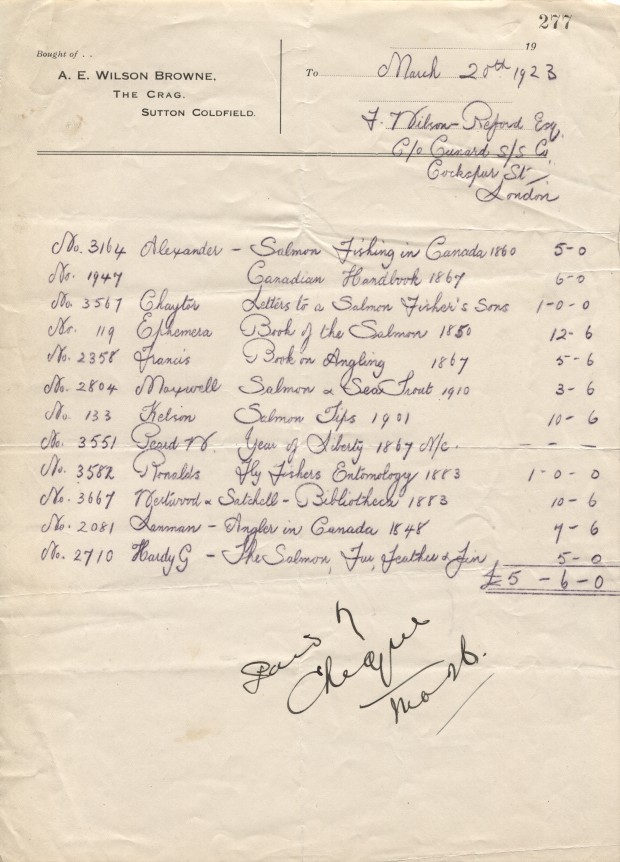 277
Bought of . .
A. E. WILSON BROWNE,
THE CRAG.
SUTTON COLDFIELD.
19
To March 20th 1923
F. Wilson-Reford Esq.
C/o Cunard S/S Co
Cockspur St
London
No. 3164 Alexander - Salmon Fishing in Canada 1860 5-0
No. 1947 Canadian Handbook 1867 6-0
No. 3567 Chaytor Letters to a Salmon Fisher's Sons 1-0-0
No. 119 Ephemera Book of the Salmon 1850 12-6
No. 2358 Francis Book on Angling 1867 5-6
No. 2804 Maxwell Salmon & Sea Trout 1910 3-6
No. 133 Kelson Salmon Tips 1901 10-6
No. 3551 Peard W. Year of Liberty 1867 N/c. - - -
No. 3582 Ronalds Fly Fishers Entomology 1883 1-0-0
No. 3667 Westwood & Satchell - Bibliotheca 1883 10-6
No. 2081 Lanman - Angler in Canada 1848 7-6
No. 2710 Hardy G - The Salmon, Fur, Feather & Fin 5-0
£5-6-0
Cheque